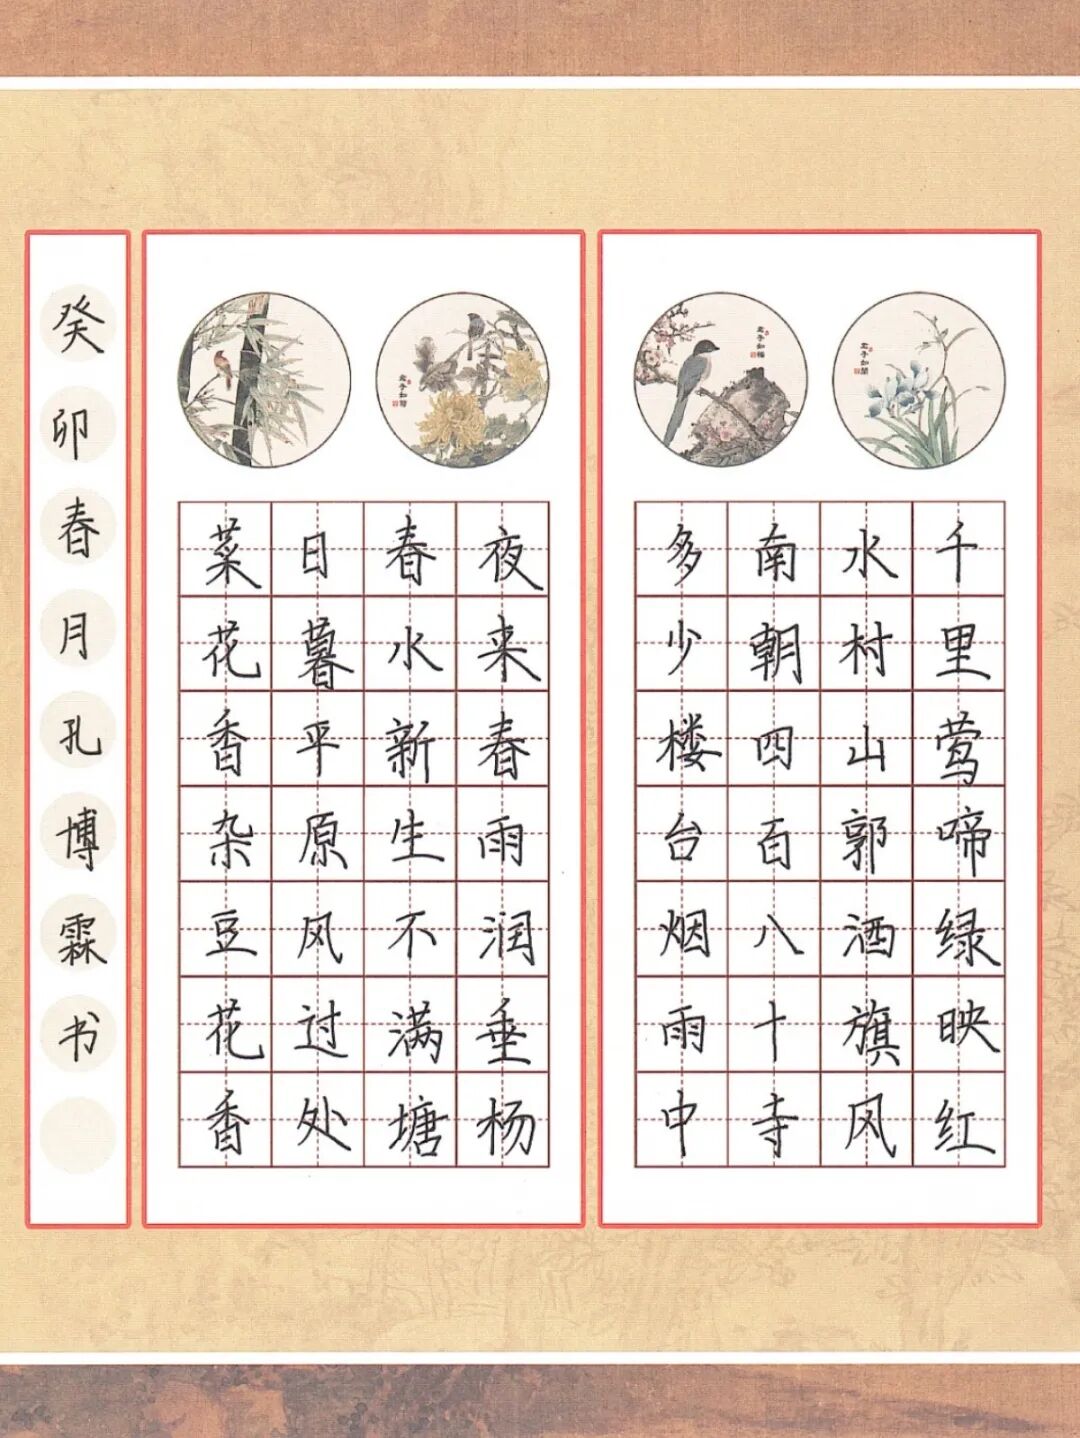 君子如梅
千里莺啼绿映红
水村山郭酒旗风
南朝四百八十寺
多少楼台烟雨中
夜来春雨润垂杨
春水新生不满塘
日暮平原风过处
菜花香杂豆花香
癸卯春月孔博霖书